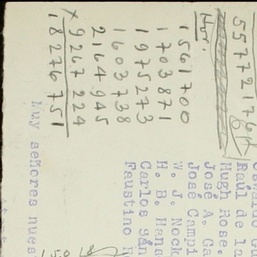 55772176
Raúl de la
Hugh Rose.
José A. Ga
José Campi
1561700
W. J. Nock
1703871
H. B. Hana
1975273
Carlos Gán
1603738
Faustino R
2164945
9267224
18276751
Muy señores nues